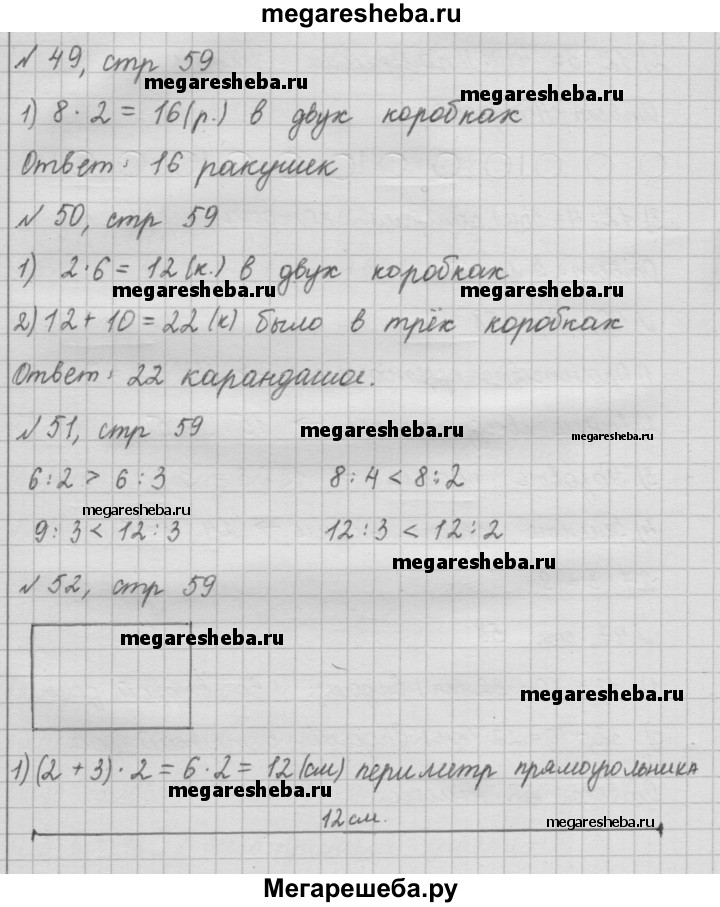 megaresheba.ru
№ 49, стр 59
megaresheba.ru
megaresheba.ru
1) 8 · 2 = 16 (р.) в двух коробках
Ответ: 16 ракушек
№ 50, стр 59
1) 2 · 6 = 12 (к.) в двух коробках
megaresheba.ru
megaresheba.ru
2) 12 + 10 = 22 (к) было в трёх коробках
Ответ: 22 карандаша.
№ 51, стр 59
megaresheba.ru
megaresheba.ru
6 : 2 > 6 : 3 8 : 4 < 8 : 2
megaresheba.ru
9 : 3 < 12 : 3 12 : 3 < 12 : 2
megaresheba.ru
№ 52, стр 59
megaresheba.ru
megaresheba.ru
1) (2 + 3) · 2 = 6 · 2 = 12 (см) периметр прямоугольника
megaresheba.ru
12 см.
megaresheba.ru
Мегарешеба.ру